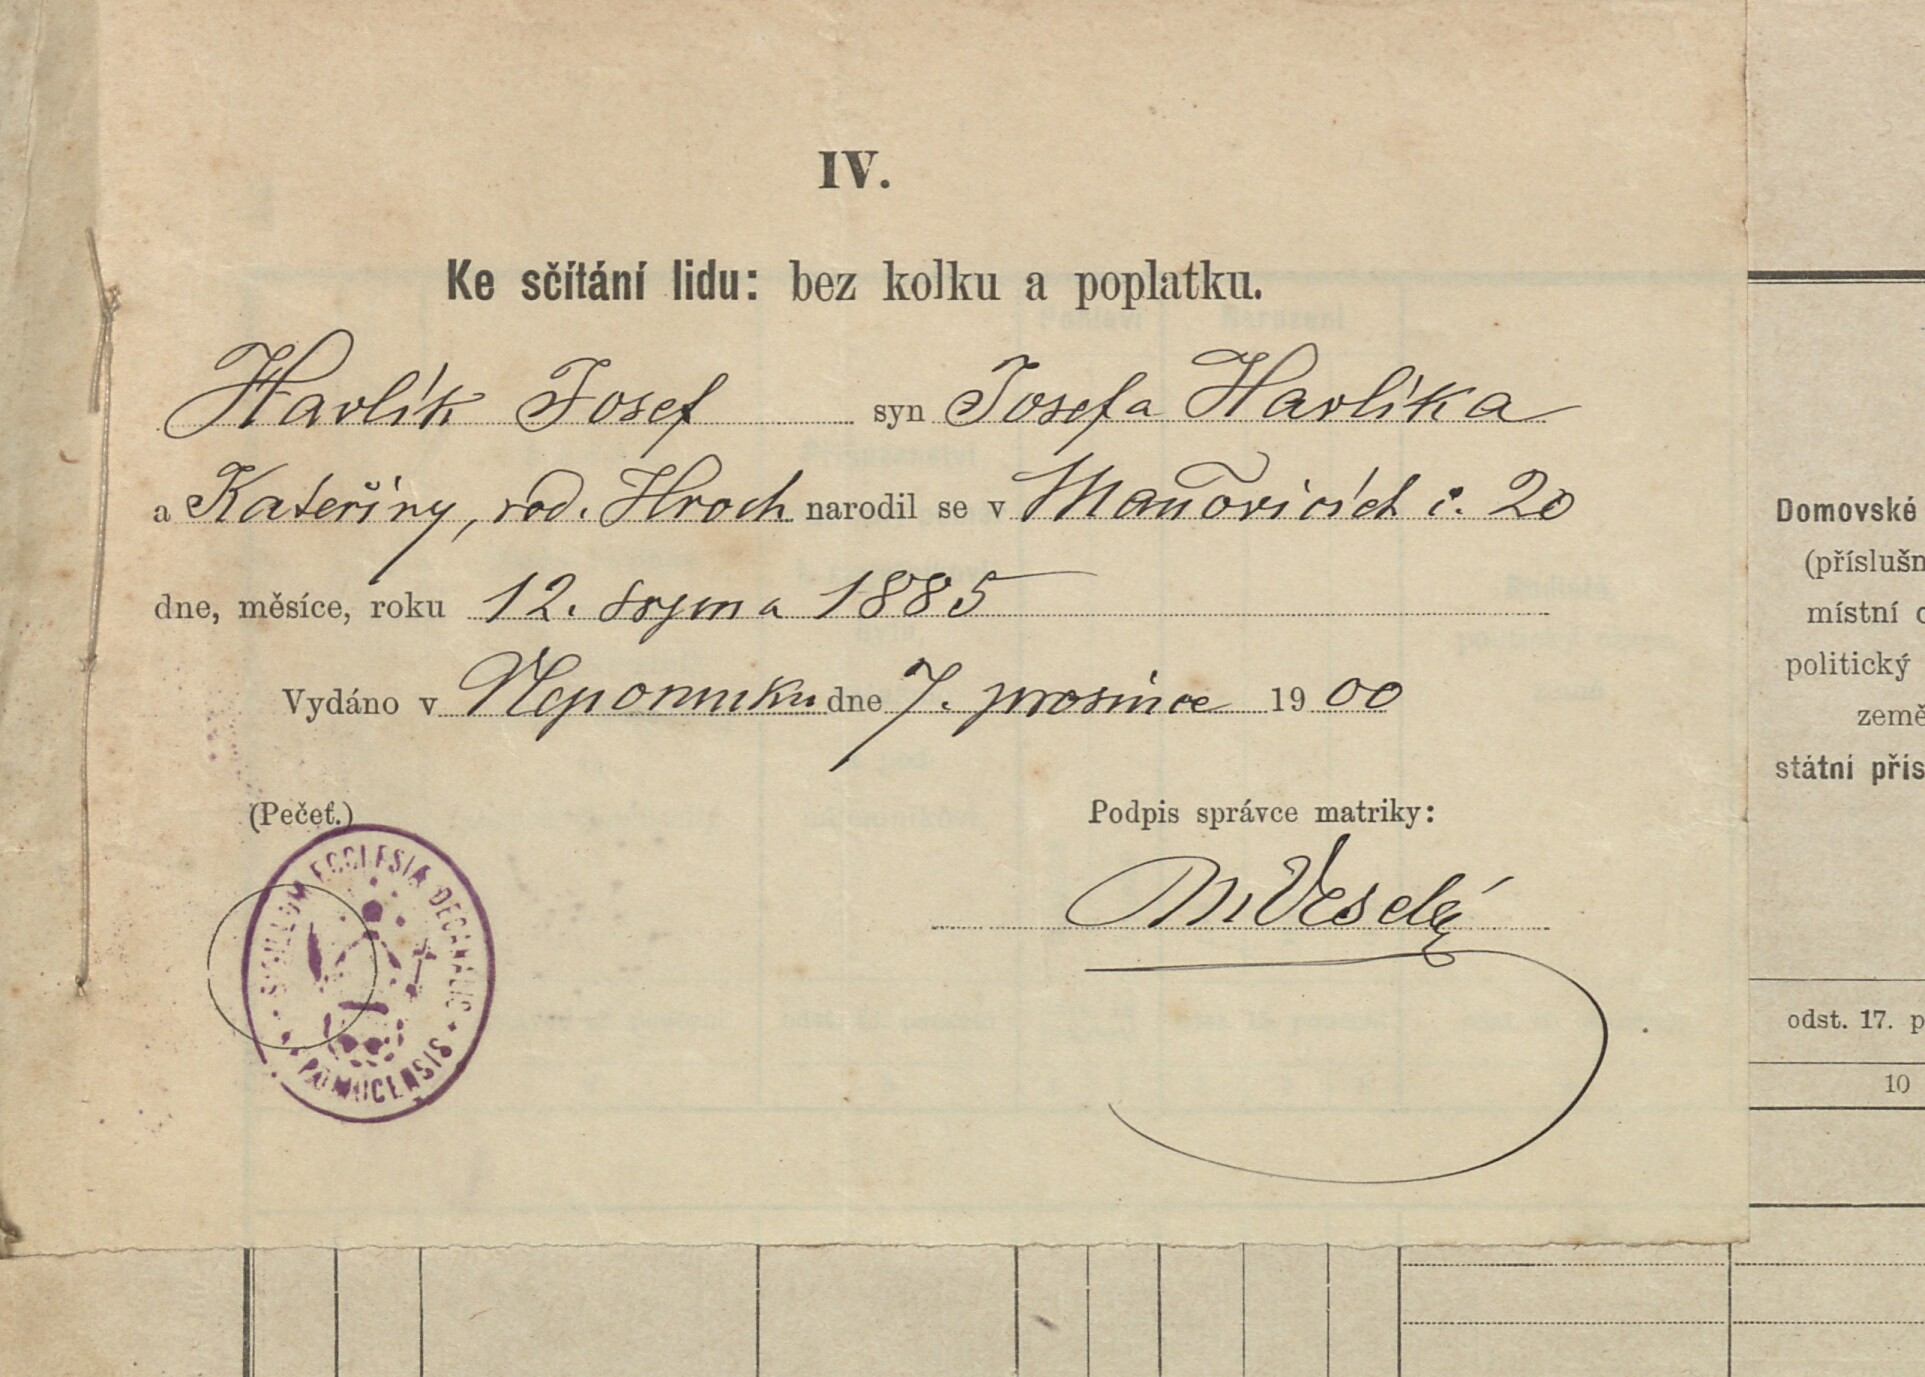 IV.
Ke sčítání lidu: bez kolku a poplatku.
Havlík Josef syn Josefa Havlíka
a Kateřiny, rod. Hroch narodil se v Maňovicích č. 20
dne, měsíce, roku 12. srpna 1885
Vydáno v Nepomuku dne 7. prosince 1900
(Pečeť.)
Podpis správce matriky:
M Veselý
SIGILLUM ECCLESIÆ DECANALIS
POMUCENSIS
Domovské
(příslušn
místní o
politický
země
státní přís
odst. 17. p
10